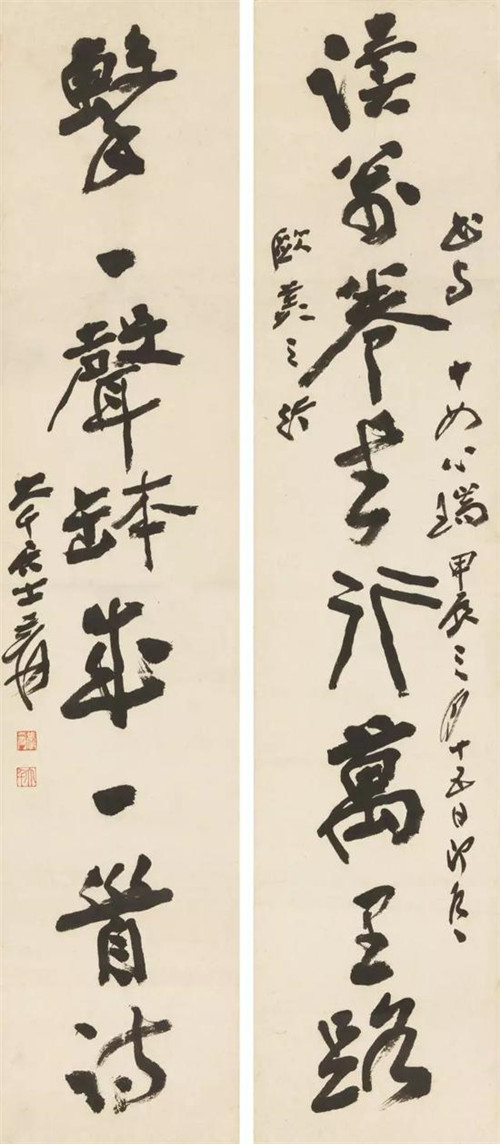 讀萬卷書行萬里路
甲辰三月十五日
擊一聲缽成一首詩
大千居士爰